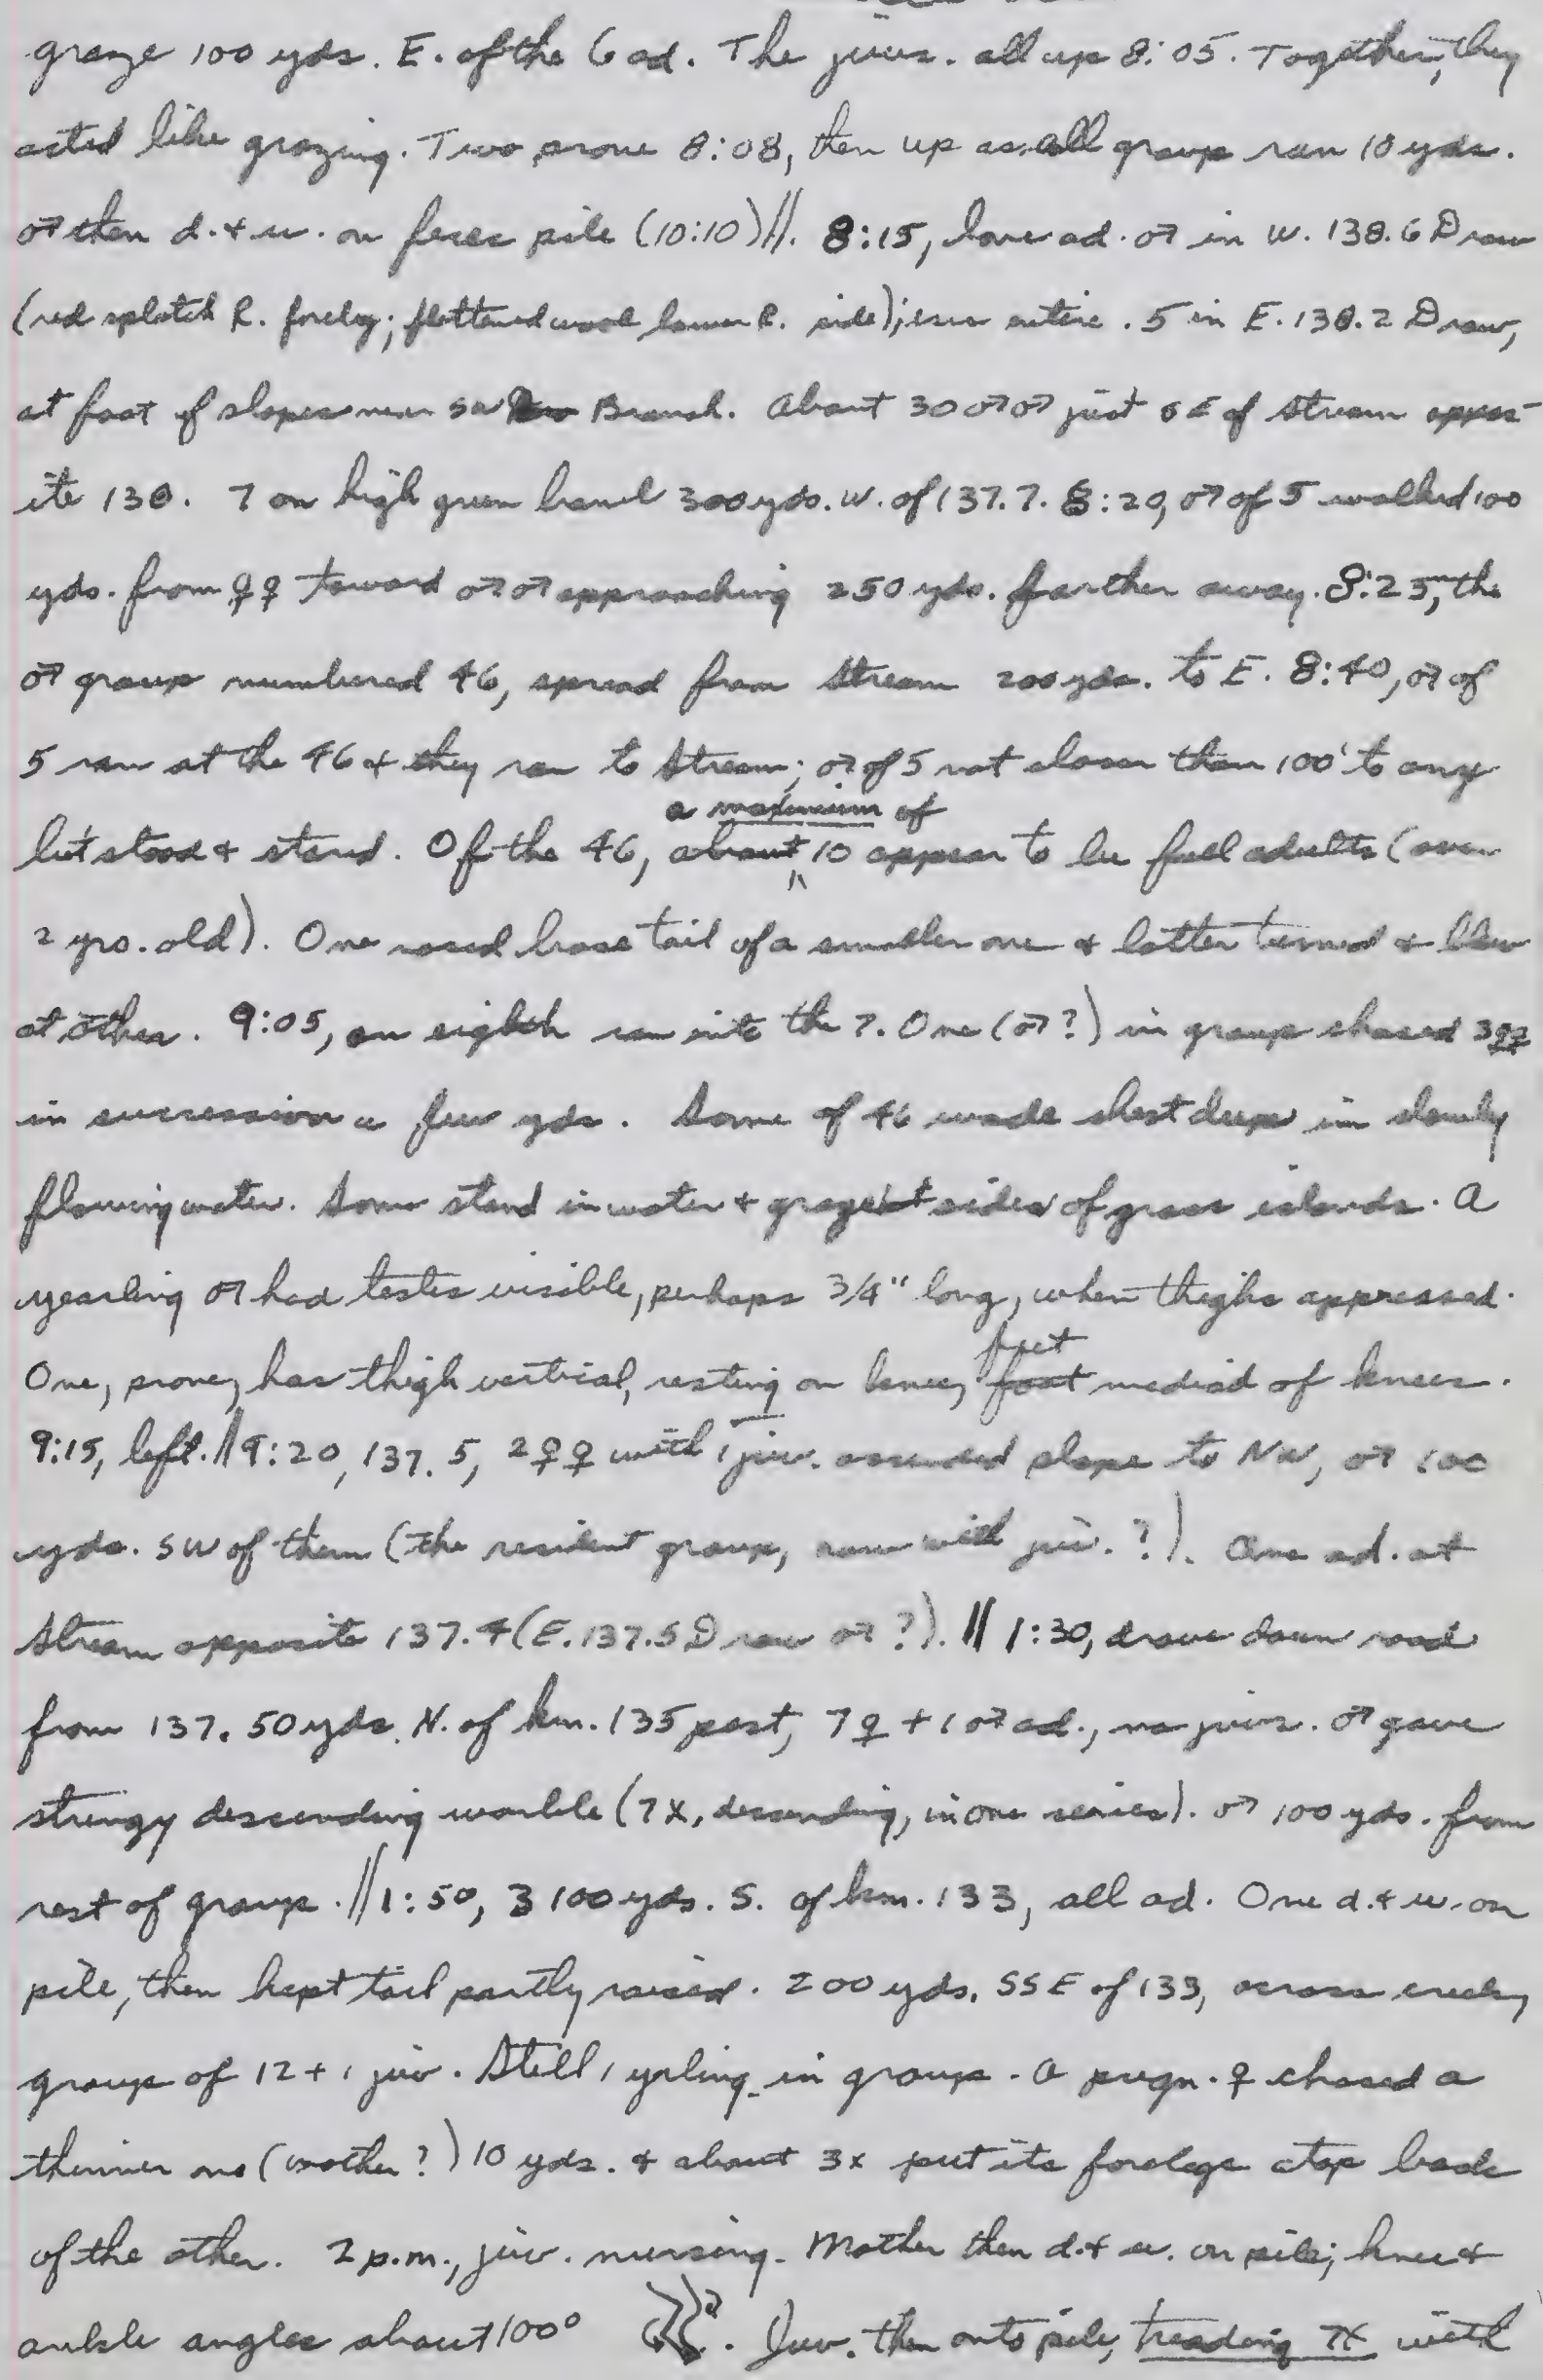 graze 100 yds. E. of the 6 ad. The juvs. all up 8:05. Together, they
acted like grazing. Two prone 8:08, then up as all group ran 10 yds.
♂ then d. + u. on feces pile (10:10)//. 8:15, lone ad. ♂ in W. 138.6 Draw
(red splotch R. foreleg; flattened wool lower R. side); ears entire. 5 in E. 138.2 Draw,
at foot of slopes near SW Branch. About 30 ♂♂ just SE of stream oppos-
ite 138. 7 on high green 300 yds. W. of 137.7. 8:20, ♂ of 5 walked 100
yds. from ♀♀ toward ♂♂ approaching 250 yds. farther away. 8:25, the
♂ group numbered 46, spread from stream 200 yds. to E. 8:40, ♂ of
5 ran at the 46 & they ran to stream; ♂ of 5 not closer than 100' to any
but stood & stared. Of the 46, about a maximum of 10 appear to be full adults (over
2 yrs. old). One nosed base tail of a smaller one & latter turned & blew
at other. 9:05, an eighth ran into the 7. One (♂?) in group chased 3 ♀♀
in succession a few yds. Some of 46 wade chest deep in slowly
flowing water. Some stand in water & graze at sides of grass islands. A
yearling ♂ had testes visible, perhaps 3/4" long, when thighs appressed.
One, prone, has thigh vertical, resting on knee, foot feet mediad of knees.
9:15, left. // 9:20, 137.5, 2 ♀♀ with 1 juv. ascended slope to NW, ♂ 100
yds. SW of them (the resident group, now with juv.?). One ad. at
stream opposite 137.4 (E. 137.5 Draw ♂?). // 1:30, drove down road
from 137. 50 yds. N. of km. 135 post, 7 ♀ + 1 ♂ ad., no juvs. ♂ gave
stringy descending warble (7X, descending, in one series). ♂ 100 yds. from
rest of group. // 1:50, 3 100 yds. S. of km. 133, all ad. One d. & u. on
pile, then kept tail partly raised. 200 yds. SSE of 133, across creek,
group of 12 + 1 juv. Still 1 yrling. in group. A pregn. ♀ chased a
thinner one (mother?) 10 yds. & about 3x put its forelegs atop back
of the other. 2 p.m., juv. nursing. Mother then d. & u. on pile; knee &
ankle angles about 100°. Juv. then onto pile, treading 7X with